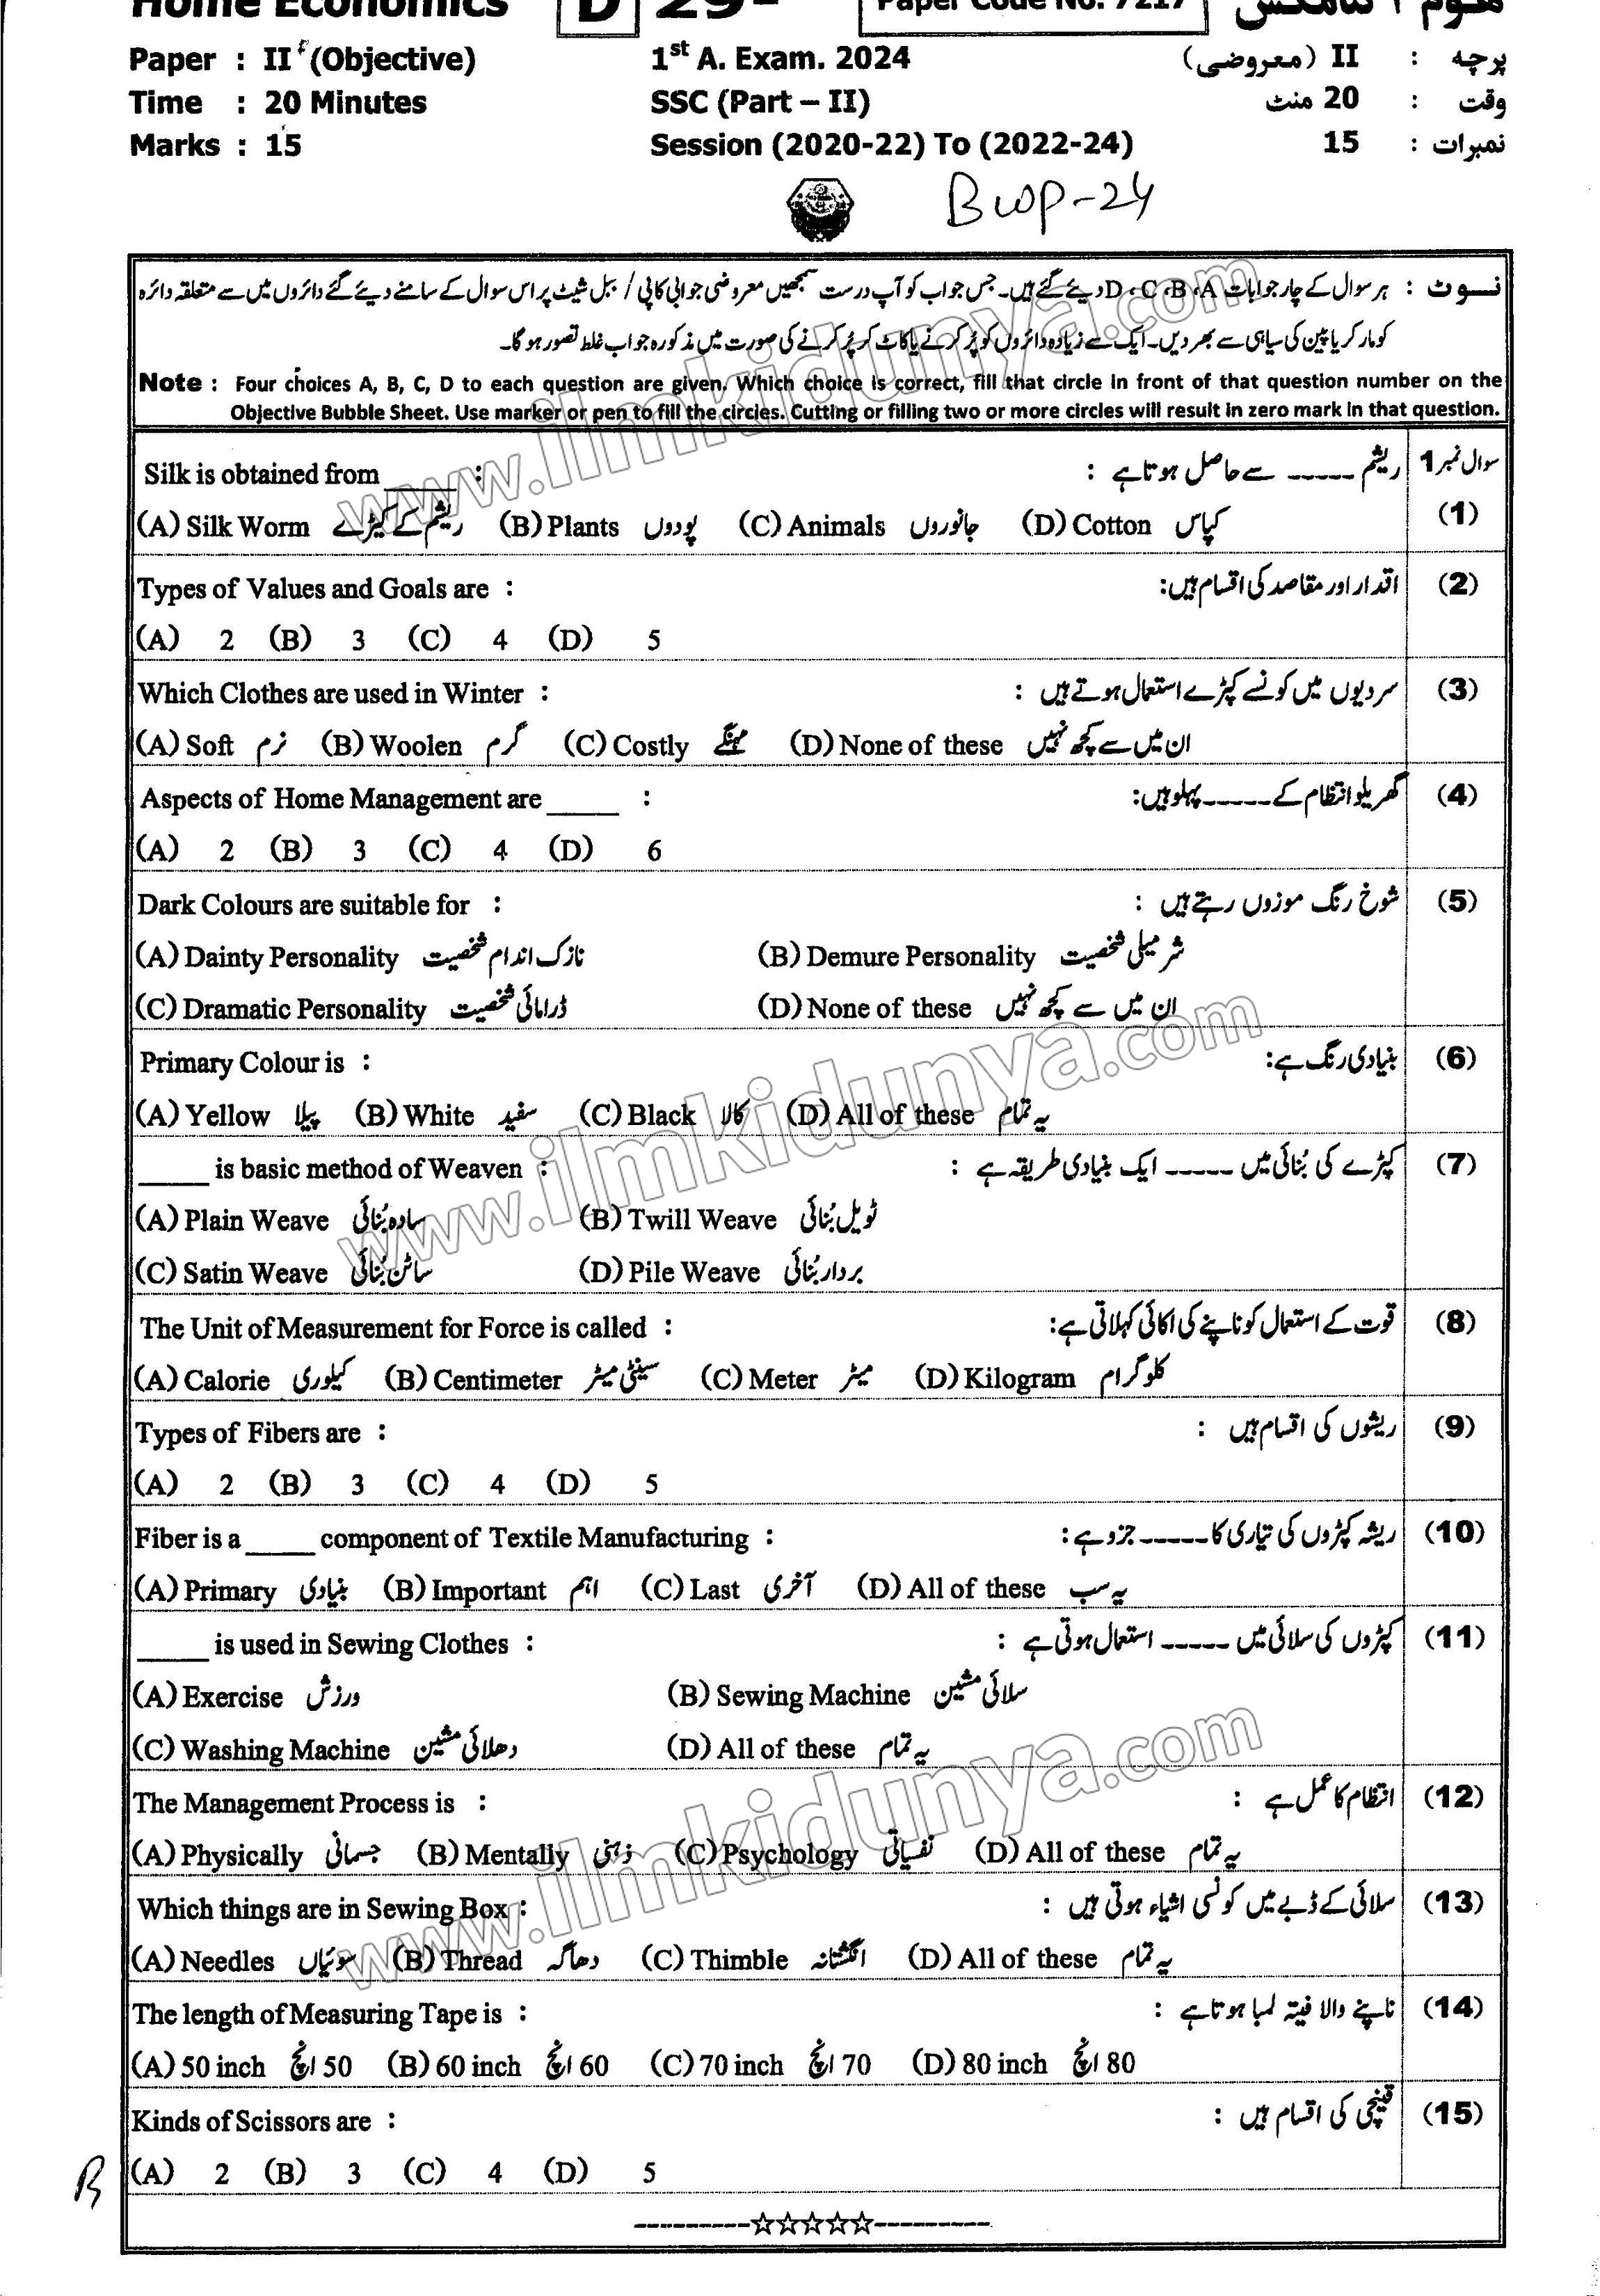 Home Economics D 29- Paper Code No. 7217 ہوم اکنامکس
Paper : II (Objective) 1st A. Exam. 2024 پرچہ : II (معروضی)
Time : 20 Minutes SSC (Part – II) وقت : 20 منٹ
Marks : 15 Session (2020-22) To (2022-24) نمبرات : 15
BWP-24
نوٹ : ہر سوال کے چار جوابات D ،C ،B ،A دیئے گئے ہیں۔ جس جواب کو آپ درست سمجھیں معروضی جوابی کاپی / ببل شیٹ پر اس سوال کے سامنے دیئے گئے دائروں میں سے متعلقہ دائرہ
کو مارکر یا پین کی سیاہی سے بھر دیں۔ ایک سے زیادہ دائروں کو پُر کرنے یا کاٹ کر پُر کرنے کی صورت میں مذکورہ جواب غلط تصور ہو گا۔
Note : Four choices A, B, C, D to each question are given. Which choice is correct, fill that circle in front of that question number on the
Objective Bubble Sheet. Use marker or pen to fill the circles. Cutting or filling two or more circles will result in zero mark in that question.
Silk is obtained from _____ : ریشم ----- سے حاصل ہوتا ہے : سوال نمبر 1
(A) Silk Worm ریشم کے کیڑے (B) Plants پودوں (C) Animals جانوروں (D) Cotton کپاس (1)
Types of Values and Goals are : اقدار اور مقاصد کی اقسام ہیں: (2)
(A) 2 (B) 3 (C) 4 (D) 5
Which Clothes are used in Winter : سردیوں میں کونسے کپڑے استعمال ہوتے ہیں : (3)
(A) Soft نرم (B) Woolen گرم (C) Costly مہنگے (D) None of these ان میں سے کچھ نہیں
Aspects of Home Management are _____ : گھریلو انتظام کے ----- پہلو ہیں: (4)
(A) 2 (B) 3 (C) 4 (D) 6
Dark Colours are suitable for : شوخ رنگ موزوں رہتے ہیں : (5)
(A) Dainty Personality نازک اندام شخصیت (B) Demure Personality شرمیلی شخصیت
(C) Dramatic Personality ڈرامائی شخصیت (D) None of these ان میں سے کچھ نہیں
Primary Colour is : بنیادی رنگ ہے: (6)
(A) Yellow پیلا (B) White سفید (C) Black کالا (D) All of these یہ تمام
_____ is basic method of Weaven : کپڑے کی بُنائی میں ----- ایک بنیادی طریقہ ہے : (7)
(A) Plain Weave سادہ بُنائی (B) Twill Weave ٹویل بُنائی
(C) Satin Weave ساٹن بُنائی (D) Pile Weave بردار بُنائی
The Unit of Measurement for Force is called : قوت کے استعمال کو ناپنے کی اکائی کہلاتی ہے: (8)
(A) Calorie کیلوری (B) Centimeter سینٹی میٹر (C) Meter میٹر (D) Kilogram کلوگرام
Types of Fibers are : ریشوں کی اقسام ہیں : (9)
(A) 2 (B) 3 (C) 4 (D) 5
Fiber is a _____ component of Textile Manufacturing : ریشہ کپڑوں کی تیاری کا ----- جزو ہے: (10)
(A) Primary بنیادی (B) Important اہم (C) Last آخری (D) All of these یہ سب
_____ is used in Sewing Clothes : کپڑوں کی سلائی میں ----- استعمال ہوتی ہے : (11)
(A) Exercise ورزش (B) Sewing Machine سلائی مشین
(C) Washing Machine دھلائی مشین (D) All of these یہ تمام
The Management Process is : انتظام کا عمل ہے : (12)
(A) Physically جسمانی (B) Mentally ذہنی (C) Psychology نفسیاتی (D) All of these یہ تمام
Which things are in Sewing Box : سلائی کے ڈبے میں کونسی اشیاء ہوتی ہیں : (13)
(A) Needles سوئیاں (B) Thread دھاگہ (C) Thimble انگشتانہ (D) All of these یہ تمام
The length of Measuring Tape is : ناپنے والا فیتہ لمبا ہوتا ہے : (14)
(A) 50 inch 50 انچ (B) 60 inch 60 انچ (C) 70 inch 70 انچ (D) 80 inch 80 انچ
Kinds of Scissors are : قینچی کی اقسام ہیں : (15)
(A) 2 (B) 3 (C) 4 (D) 5
----------☆☆☆☆☆----------
www.ilmkidunya.com
www.ilmkidunya.com
www.ilmkidunya.com